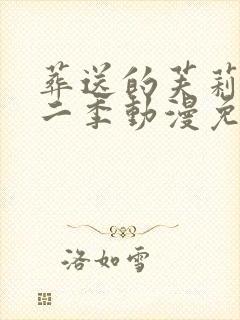 葬送的芙莉
二季動漫免
洛如雪